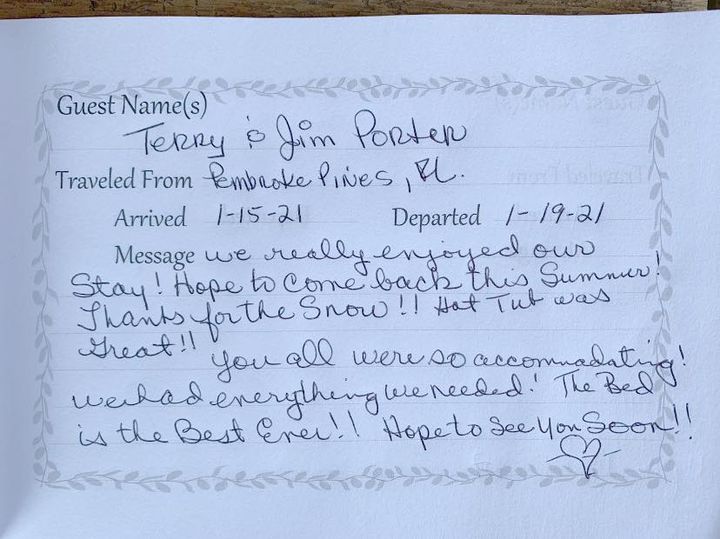 Guest Name(s)
Terry & Jim Porter
Traveled From Pembroke Pines, FL.
Arrived 1-15-21 Departed 1-19-21
Message we really enjoyed our
Stay! Hope to come back this Summer!
Thanks for the Snow!! Hot Tub was
Great!!
you all were so accommadating!
we had everything we needed! The Bed
is the Best Ever!! Hope to See You Soon!!